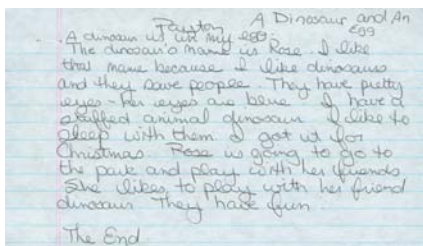 Payton A Dinosaur and An Egg
A dinosaur is in my egg.
The dinosaur's name is Rose. I like
that name because I like dinosaurs
and they save people. They have pretty
eyes. Her eyes are blue. I have a
stuffed animal dinosaur. I like to
sleep with them I got it for
Christmas. Rose is going to go to
the park and play with her friends
She likes to play with her friend
dinosaur They have fun.
The End